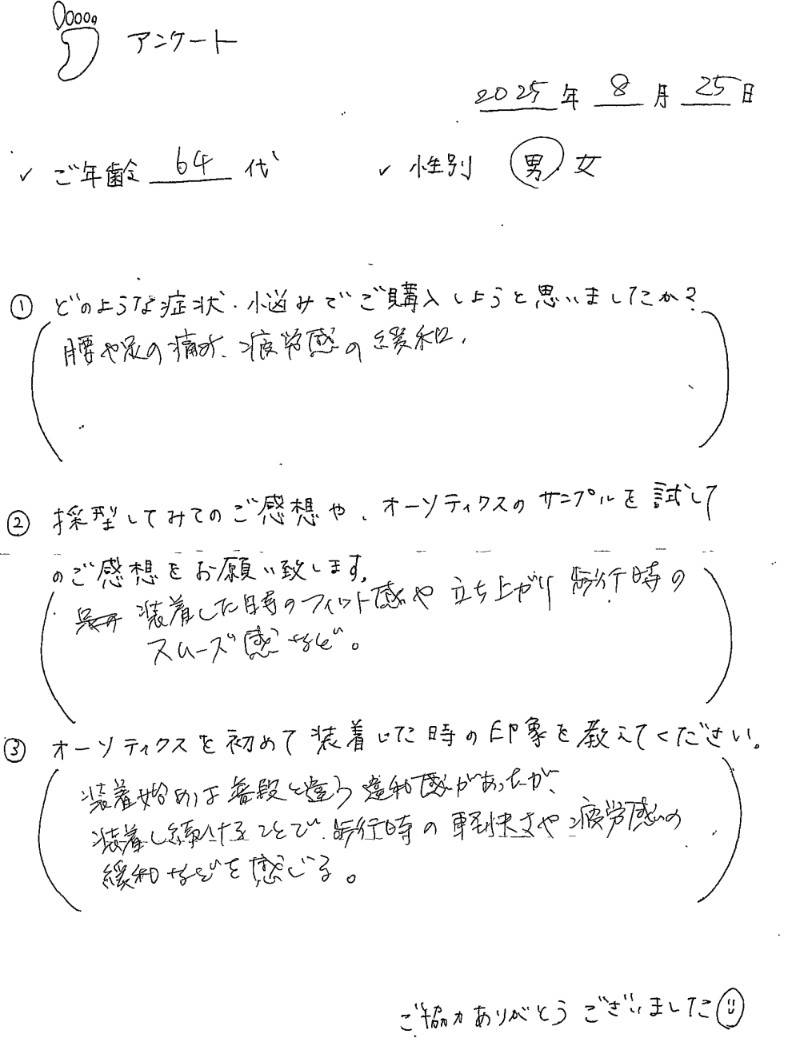 アンケート
2025年 8月 25日
✓ ご年齢 64 代 ✓ 性別 男・女
① どのような症状・悩みでご購入しようと思いましたか?
腰や足の痛み、疲労感の緩和、
② 採型してみてのご感想や、オーソティクスのサンプルを試して
のご感想をお願い致します。
装着した時のフィット感や 立ち上がり 歩行時の
スムーズ感など。
③ オーソティクスを初めて装着した時の印象を教えてください。
装着始めは普段と違う違和感があったが、
装着し続けることで、歩行時の軽快さや疲労感の
緩和などを感じる。
ご協力ありがとうございました